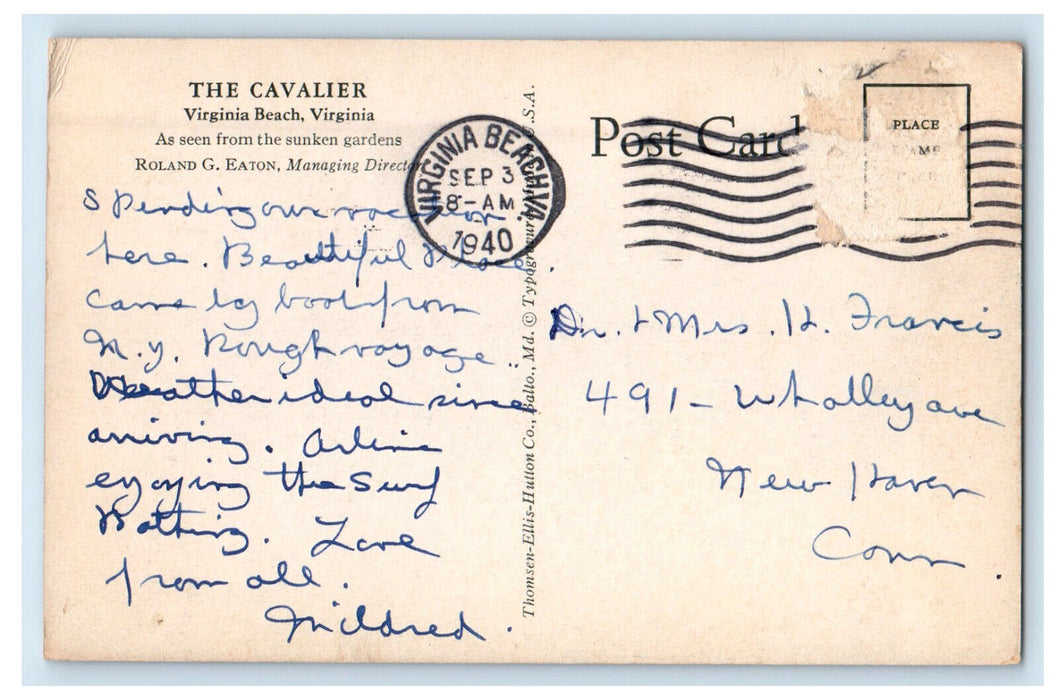 THE CAVALIER
Virginia Beach, Virginia
As seen from the sunken gardens
ROLAND G. EATON, Managing Director
Spending our vacation
here. Beautiful Place.
Came by boat from
N.Y. Rough voyage..
Weather ideal since
arriving. Arline
enjoying the Surf
Bathing. Love
from all.
Mildred.
VIRGINIA BEACH, VA.
SEP 3
8-AM
1940
Thomsen-Ellis-Hutton Co., Balto., Md. © Typogravure U.S.A.
Post Card
PLACE
Dr. & Mrs. H. Francis
491- Whalley ave
New Haven
Conn.